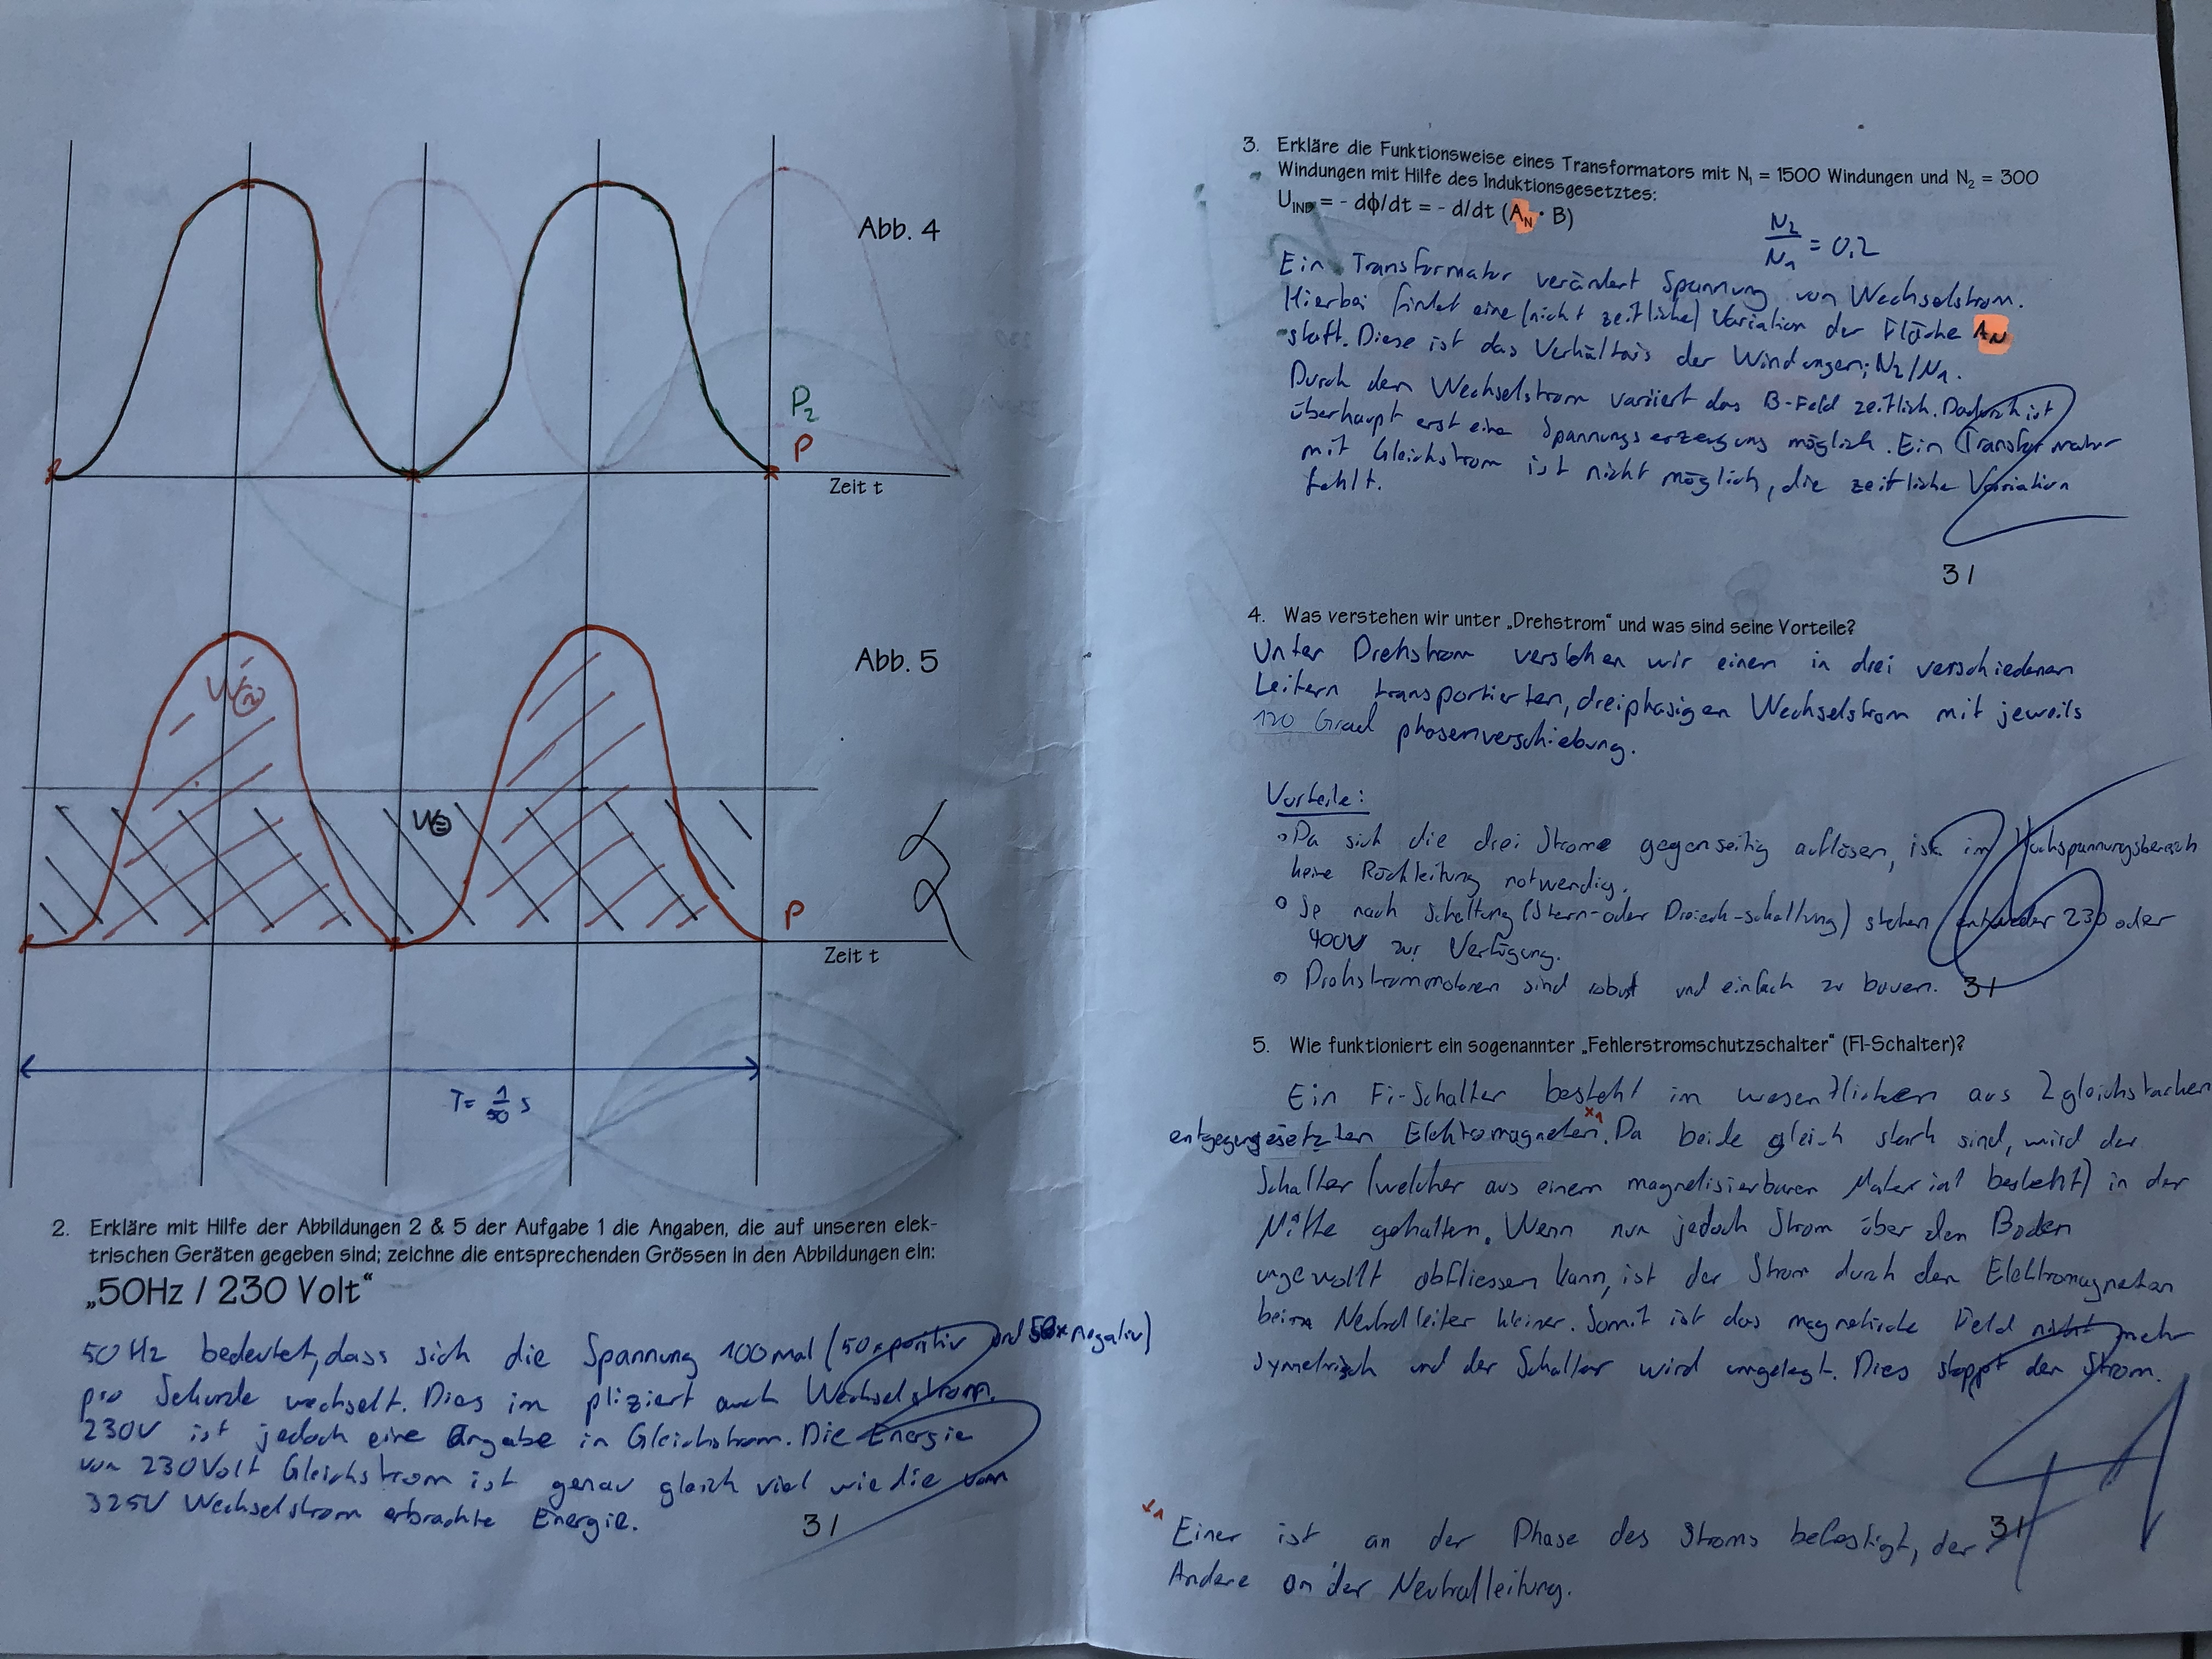 Abb. 4
P2
P
Zeit t
Abb. 5
W~
W=
P
Zeit t
T= 1/50 s
2. Erkläre mit Hilfe der Abbildungen 2 & 5 der Aufgabe 1 die Angaben, die auf unseren elek-
trischen Geräten gegeben sind; zeichne die entsprechenden Grössen in den Abbildungen ein:
„50Hz / 230 Volt“
50Hz bedeutet, dass sich die Spannung 100 mal (50x positiv und 50x negativ)
pro Sekunde wechselt. Dies im pliziert auch Wechselstrom.
230V ist jedoch eine Angabe in Gleichstrom. Die Energie
von 230Volt Gleichstrom ist genau gleich viel wie die vom
325V Wechselstrom erbrachte Energie.
3/
3. Erkläre die Funktionsweise eines Transformators mit N1 = 1500 Windungen und N2 = 300
Windungen mit Hilfe des Induktionsgesetztes:
UIND = - dϕ/dt = - d/dt (AN · B)
N2/N1 = 0.2
Ein Transformator verändert Spannung von Wechselstrom.
Hierbei findet eine (nicht zeitliche) Variation der Fläche AN
statt. Diese ist das Verhältnis der Windungen; N2/N1.
Durch den Wechselstrom variiert das B-Feld zeitlich. Dadurch ist
überhaupt erst eine Spannungserzeugung möglich. Ein Transformator
mit Gleichstrom ist nicht möglich, die zeitliche Variation
fehlt.
3/
4. Was verstehen wir unter „Drehstrom“ und was sind seine Vorteile?
Unter Drehstrom verstehen wir einen in drei verschiedenen
Leitern transportierten, dreiphasigen Wechselstrom mit jeweils
120 Grad phasenverschiebung.
Vorteile:
Da sich die drei Ströme gegenseitig auflösen, ist im Hochspannungsbereich
keine Rückleitung notwendig.
Je nach Schaltung (Stern- oder Dreieck-schaltung) stehen entweder 230 oder
400V zur Verfügung.
Drehstrommotoren sind robust und einfach zu bauen.
3/
5. Wie funktioniert ein sogenannter „Fehlerstromschutzschalter“ (FI-Schalter)?
Ein Fi-Schalter besteht im wesentlichen aus 2 gleichstarken
entgegengesetzten Elektromagneten.x1 Da beide gleich stark sind, wird der
Schalter (welcher aus einem magnetisierbaren Material besteht) in der
Mitte gehalten. Wenn nun jedoch Strom über den Boden
ungewollt abfliessen kann, ist der Strom durch den Elektromagneten
beim Neutralleiter kleiner. Somit ist das magnetische Feld nicht mehr
symmetrisch und der Schalter wird umgelegt. Dies stoppt den Strom.
x1 Einer ist an der Phase des Stroms befestigt, der
Andere an der Neutralleitung.
3/